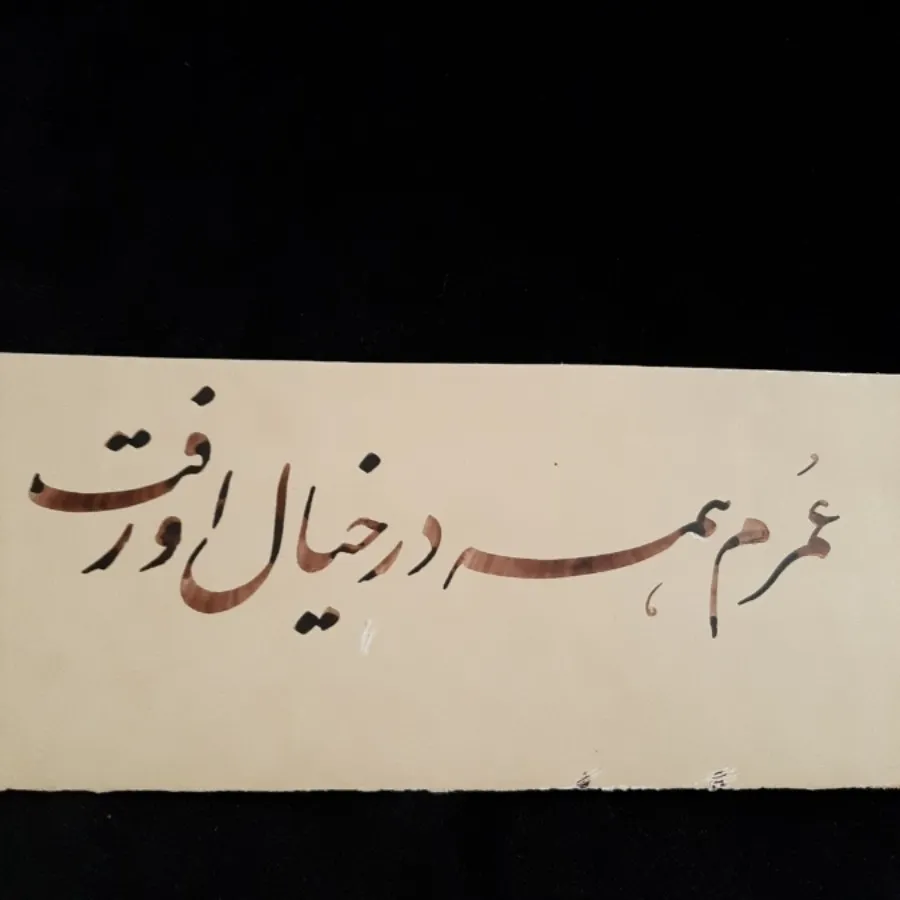 عُمرم همه در خیال او رفت